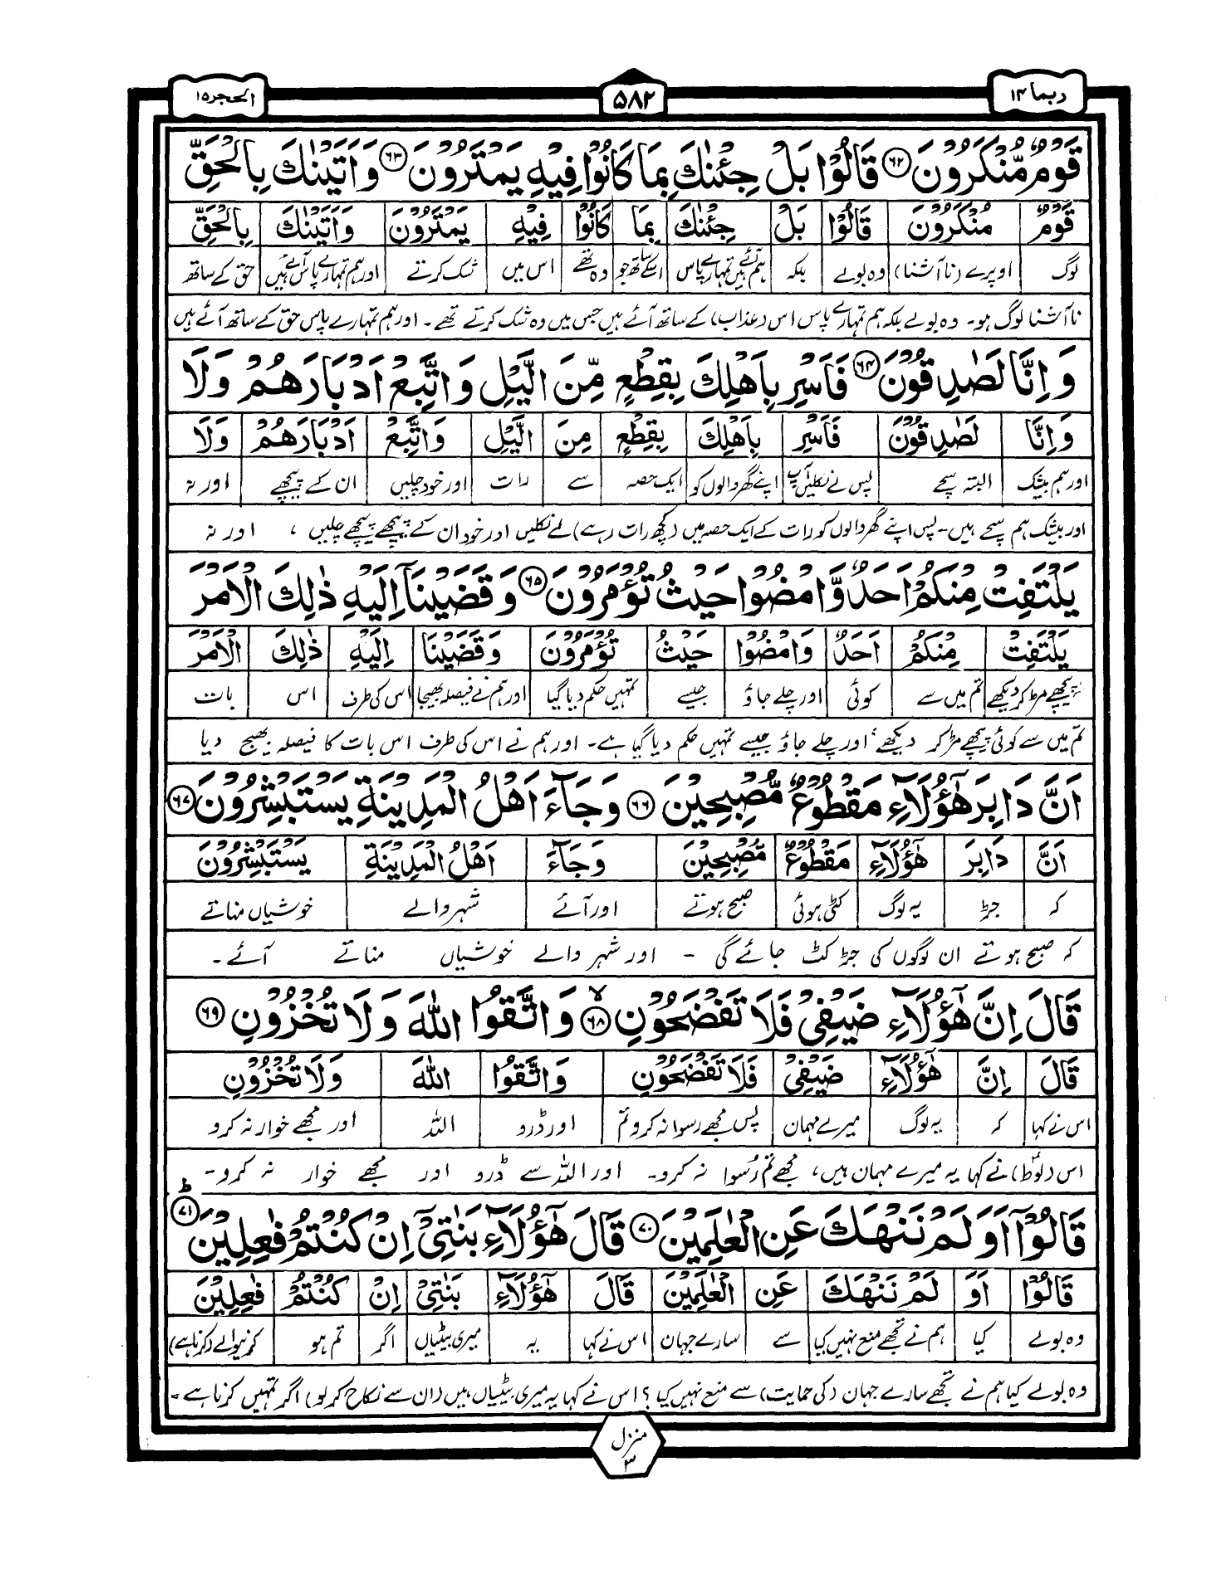 ربما ۱۴
۵۸۲
الحجر ۱۵
قَوْمٌ مُّنْكَرُوْنَ ۶۲ قَالُوْا بَلْ جِئْنٰكَ بِمَا كَانُوْا فِيْهِ يَمْتَرُوْنَ ۶۳ وَاَتَيْنٰكَ بِالْحَقِّ
قَوْمٌ مُّنْكَرُوْنَ قَالُوْا بَلْ جِئْنٰكَ بِمَا كَانُوْا فِيْهِ يَمْتَرُوْنَ وَاَتَيْنٰكَ بِالْحَقِّ
لوگ اوپرے (ناآشنا) وہ بولے بلکہ ہم آئے ہیں تمہارے پاس اسکے ساتھ جو وہ تھے اس میں شک کرتے اور ہم تمہارے پاس آئے ہیں حق کے ساتھ
ناآشنا لوگ ہو۔ وہ بولے بلکہ ہم تمہارے پاس اس (عذاب) کے ساتھ آئے ہیں جس میں وہ شک کرتے تھے۔ اور ہم تمہارے پاس حق کے ساتھ آئے ہیں
وَاِنَّا لَصٰدِقُوْنَ ۶۴ فَاَسْرِ بِاَهْلِكَ بِقِطْعٍ مِّنَ الَّيْلِ وَاتَّبِعْ اَدْبَارَهُمْ وَلَا
وَاِنَّا لَصٰدِقُوْنَ فَاَسْرِ بِاَهْلِكَ بِقِطْعٍ مِنَ الَّيْلِ وَاتَّبِعْ اَدْبَارَهُمْ وَلَا
اور ہم بیشک البتہ سچے پس لے نکلیں آپ اپنے گھر والوں کو ایک حصہ سے رات اور خود چلیں ان کے پیچھے اور نہ
اور بیشک ہم سچے ہیں۔ پس اپنے گھر والوں کو رات کے ایک حصہ میں (کچھ رات رہے) لے نکلیں اور خود ان کے پیچھے پیچھے چلیں، اور نہ
يَلْتَفِتْ مِنْكُمْ اَحَدٌ وَّامْضُوْا حَيْثُ تُؤْمَرُوْنَ ۶۵ وَقَضَيْنَآ اِلَيْهِ ذٰلِكَ الْاَمْرَ
يَلْتَفِتْ مِنْكُمْ اَحَدٌ وَامْضُوْا حَيْثُ تُؤْمَرُوْنَ وَقَضَيْنَا اِلَيْهِ ذٰلِكَ الْاَمْرَ
پیچھے مڑ کر دیکھے تم میں سے کوئی اور چلے جاؤ جیسے تمہیں حکم دیا گیا اور ہم نے فیصلہ بھیجا اس کی طرف اس بات
تم میں سے کوئی پیچھے مڑ کر دیکھے، اور چلے جاؤ جیسے تمہیں حکم دیا گیا ہے۔ اور ہم نے اس کی طرف اس بات کا فیصلہ بھیج دیا
اَنَّ دَابِرَ هٰٓؤُلَآءِ مَقْطُوْعٌ مُّصْبِحِيْنَ ۶۶ وَجَآءَ اَهْلُ الْمَدِيْنَةِ يَسْتَبْشِرُوْنَ ۶۷
اَنَّ دَابِرَ هٰٓؤُلَآءِ مَقْطُوْعٌ مُّصْبِحِيْنَ وَجَآءَ اَهْلُ الْمَدِيْنَةِ يَسْتَبْشِرُوْنَ
کہ جڑ یہ لوگ کٹی ہوئی صبح ہوتے اور آئے شہر والے خوشیاں مناتے
کہ صبح ہوتے ان لوگوں کی جڑ کٹ جائے گی - اور شہر والے خوشیاں مناتے آئے۔
قَالَ اِنَّ هٰٓؤُلَآءِ ضَيْفِيْ فَلَا تَفْضَحُوْنِ ۶۸ لا وَاتَّقُوا اللّٰهَ وَلَا تُخْزُوْنِ ۶۹
قَالَ اِنَّ هٰٓؤُلَآءِ ضَيْفِيْ فَلَا تَفْضَحُوْنِ وَاتَّقُوا اللّٰهَ وَلَا تُخْزُوْنِ
اس نے کہا کہ یہ لوگ میرے مہمان پس مجھے رسوا نہ کرو تم اور ڈرو اللہ اور مجھے خوار نہ کرو
اس (لوطؑ) نے کہا یہ میرے مہمان ہیں، مجھے تم رُسوا نہ کرو۔ اور اللہ سے ڈرو اور مجھے خوار نہ کرو۔
قَالُوْٓا اَوَلَمْ نَنْهَكَ عَنِ الْعٰلَمِيْنَ ۷۰ قَالَ هٰٓؤُلَآءِ بَنٰتِيْٓ اِنْ كُنْتُمْ فٰعِلِيْنَ ۷۱ ط
قَالُوْٓا اَوَ لَمْ نَنْهَكَ عَنِ الْعٰلَمِيْنَ قَالَ هٰٓؤُلَآءِ بَنٰتِيْٓ اِنْ كُنْتُمْ فٰعِلِيْنَ
وہ بولے کیا ہم نے تجھے منع نہیں کیا سے سارے جہان اس نے کہا یہ میری بیٹیاں اگر تم ہو کرنیوالے (کرنا ہے)
وہ بولے کیا ہم نے تجھے سارے جہان (کی حمایت) سے منع نہیں کیا؟ اس نے کہا یہ میری بیٹیاں ہیں (ان سے نکاح کر لو) اگر تمہیں کرنا ہے۔
منزل ۳